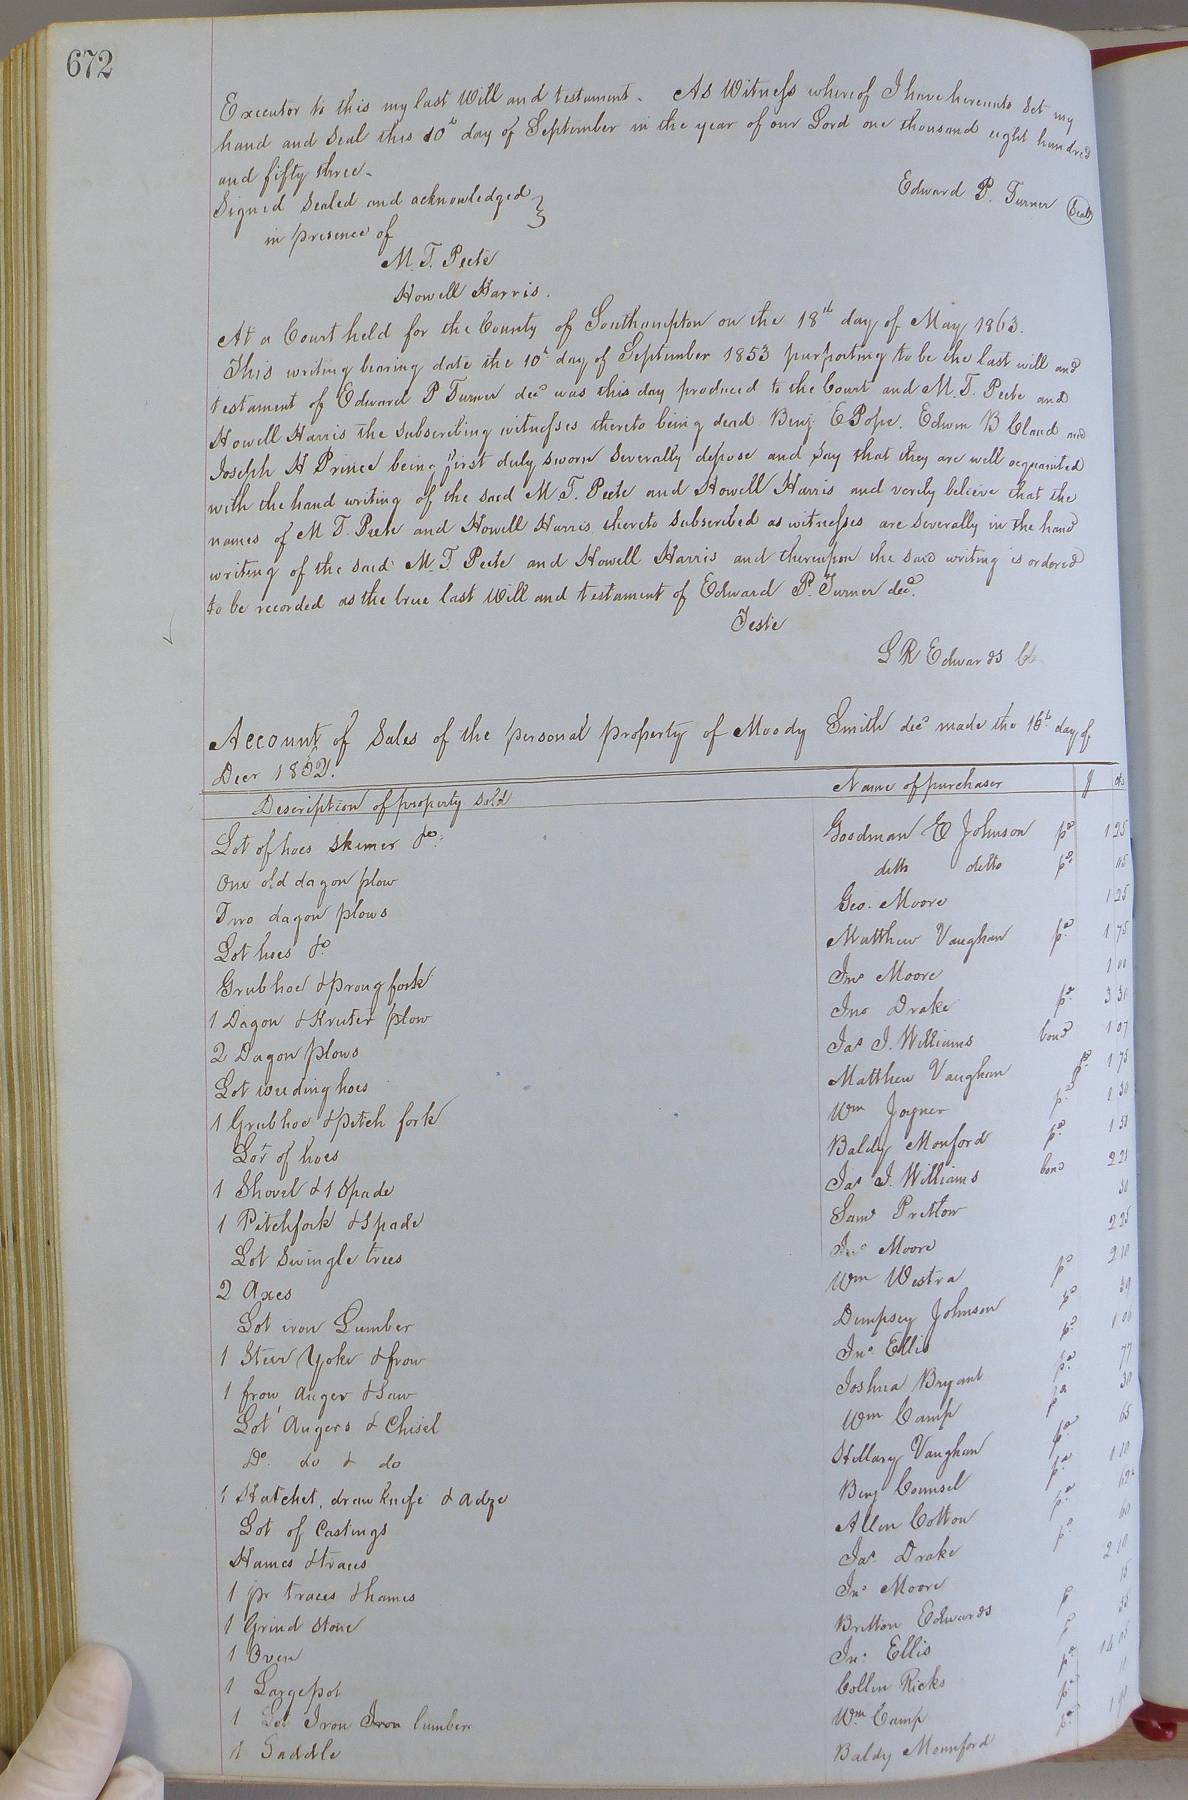 672
Executor to this my last Will and testament. As Witness whereof I have hereunto set my
hand and seal this 10th day of September in the year of our Lord one thousand eight hundred
and fifty three.
Edward P. Turner (Seal)
Signed Sealed and acknowledged }
in presence of
M. T. Peete
Howell Harris.
At a Court held for the County of Southampton on the 18th day of May 1863.
This writing bearing date the 10th day of September 1853 purporting to be the last will and
testament of Edward P Turner decd was this day produced to the Court and M. T. Peete and
Howell Harris the subscribing witnesses thereto being dead Benj. E Pope. Edwin B Claud and
Joseph H Prince being first duly sworn severally depose and say that they are well acquainted
with the hand writing of the said M. T. Peete and Howell Harris and verily believe that the
names of M T. Peete and Howell Harris thereto subscribed as witnesses are severally in the hand
writing of the said M. T Peete and Howell Harris and thereupon the said writing is ordered
to be recorded as the true last Will and testament of Edward P. Turner decd.
Teste
L R Edwards Clk
Account of Sales of the personal property of Moody Smith decd made the 16th day of
Decr 1862.
Description of property sold Name of purchaser $ cts
Lot of hoes skimer &c. Goodman E Johnson pd 1 25
One old dagon plow ditto ditto pd 05
Two dagon plows Geo. Moore 1 25
Lot hoes &c Matthew Vaughan pd 1 75
Grubhoe & prong fork Jno Moore 1 00
1 Dagon & Kruter plow Jno Drake pd 3 30
2 Dagon plows Jas J. Williams bond 1 07
Lot weeding hoes Matthew Vaughan pd 1 75
1 Grubhoe & pitch fork Wm Joyner pd
Lot of hoes Baldy Monford pd
1 Shovel & 1 Spade Jas J. Williams bond 2 25
1 Pitchfork & Spade Saml Pretlow 50
Lot Swingle trees Jno Moore 2 25
2 Axes Wm Westra pd 2 10
Lot iron Lumber Dempsey Johnson pd
1 Steer Yoke & frow Jno Ellis pd
1 frow, auger & saw Joshua Bryant pd 77
Lot Augers & Chisel Wm Camp pd 30
Do. do & do Hillary Vaughan pd 65
1 Hatchet, draw knife & adze Benj Counsel pd 1 10
Lot of Castings Allen Cotton pd
Hames & traces Jas. Drake pd 60
1 pr traces & hames Jno Moore 2 10
1 Grind stone Britton Edwards p 15
1 Oven Jno. Ellis p
1 Large pot Collin Ricks pd
1 Lot Iron Iron lumber Wm Camp pd
1 Saddle Baldy Mounford pd